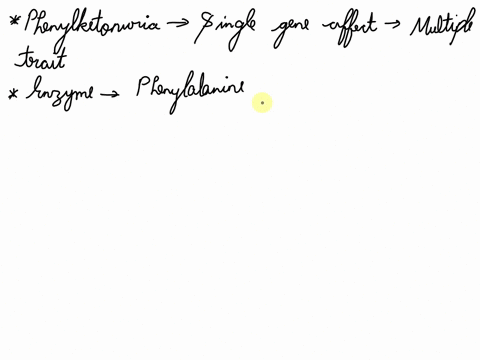 * Phenylketonuria → Single gene affect → Multiple
trait
* Enzyme → Phenylalanine